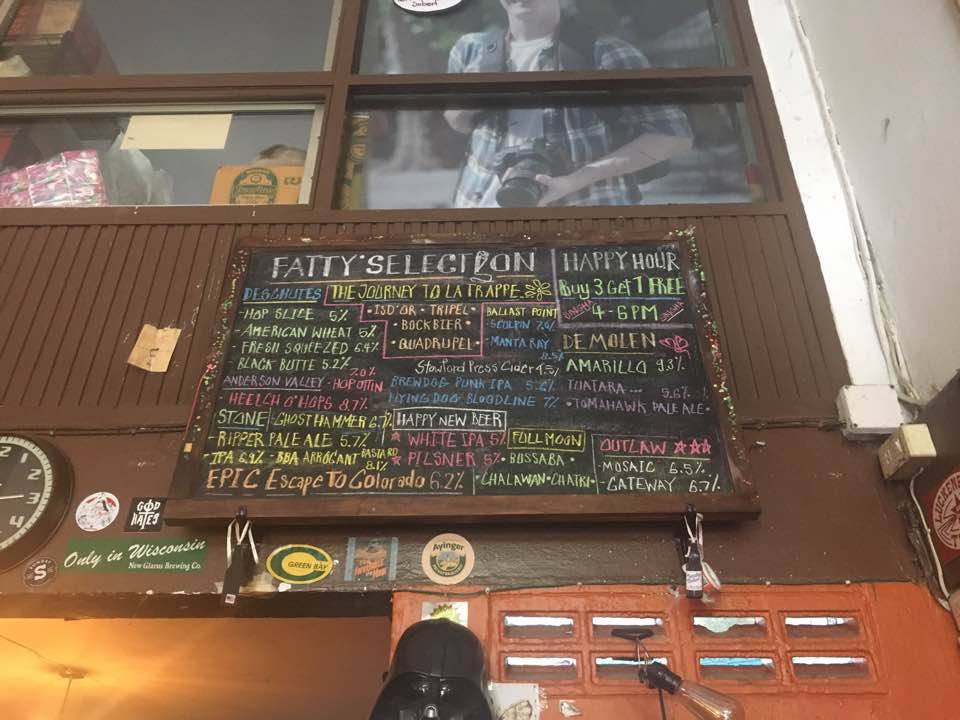 FATTY'SELECTION
HAPPY HOUR
Buy 3 Get 1 FREE
4-6PM
DESCHUTES
-HOP SLICE 5%
-AMERICAN WHEAT 5%
-FRESH SQUEEZED 6.4%
-BLACK BUTTE 5.2%
THE JOURNEY TO LA TRAPPE.
•ISD'OR•TRIPEL•
•BOCKBIER•
•QUADRUPEL•
BALLAST POINT
-SCULPIN 7.0%
-MANTA RAY
8.5%
DE MOLEN
AMARILLO 9.3%
Stowford Press Cider 4.5%
ANDERSON VALLEY -HOP OTTIN 7.0%
HEELCH O'HOPS 8.7%
BREWDOG PUNK IPA 5.6%
FLYING DOG BLOODLINE 7%
TUATARA ...
5.6%
•TOMAHAWK PALE ALE•
STONE -GHOST HAMMER 6.7%
-RIPPER PALE ALE 5.7%
-IPA 6.9% -BBA ARROGANT BASTARD
8.1%
HAPPY NEW BEER
WHITE IPA 5%
PILSNER 5%
FULLMOON
•BUSSABA•
•CHALAWAN•CHATRI•
OUTLAW
-MOSAIC 6.5%
-GATEWAY 6.7%
EPIC Escape To Colorado 6.2%
2
3
4
GOD
HATES
Only in Wisconsin
New Glarus Brewing Co.
S
GREEN BAY
Ayinger